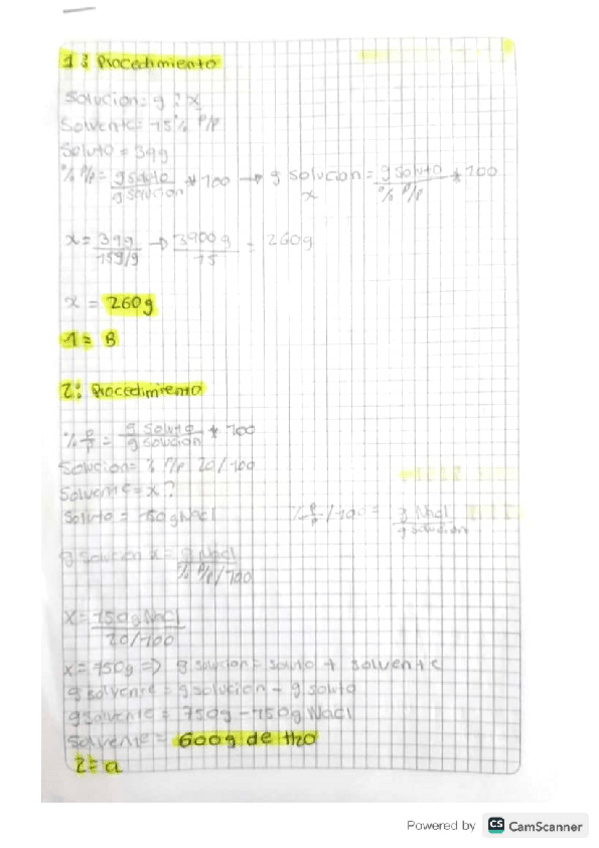 1: Procedimiento
Solucion: g ? x
Solvente= 15% P/P
Soluto = 39g
% P/P= g soluto / g solucion * 100 → g solucion x = g soluto / % P/P * 100
x = 39g / 15g/g → 3900g / 15 = 260g
x = 260g
1= B
2: Procedimiento
% P/P = g soluto / g solucion * 100
Solucion= % P/P 20/100
Solvente= x ?
Soluto = 150 gNacl
% P/P /100 = g Nacl / g solucion
g solucion x = g Nacl / % P/P /100
X= 150g Nacl / 20/100
x= 750g => g solucion= soluto + solvente
g solvente = g solucion - g soluto
g solvente = 750g - 150g Nacl
solvente= 600g de H20
2= a
Powered by CS CamScanner